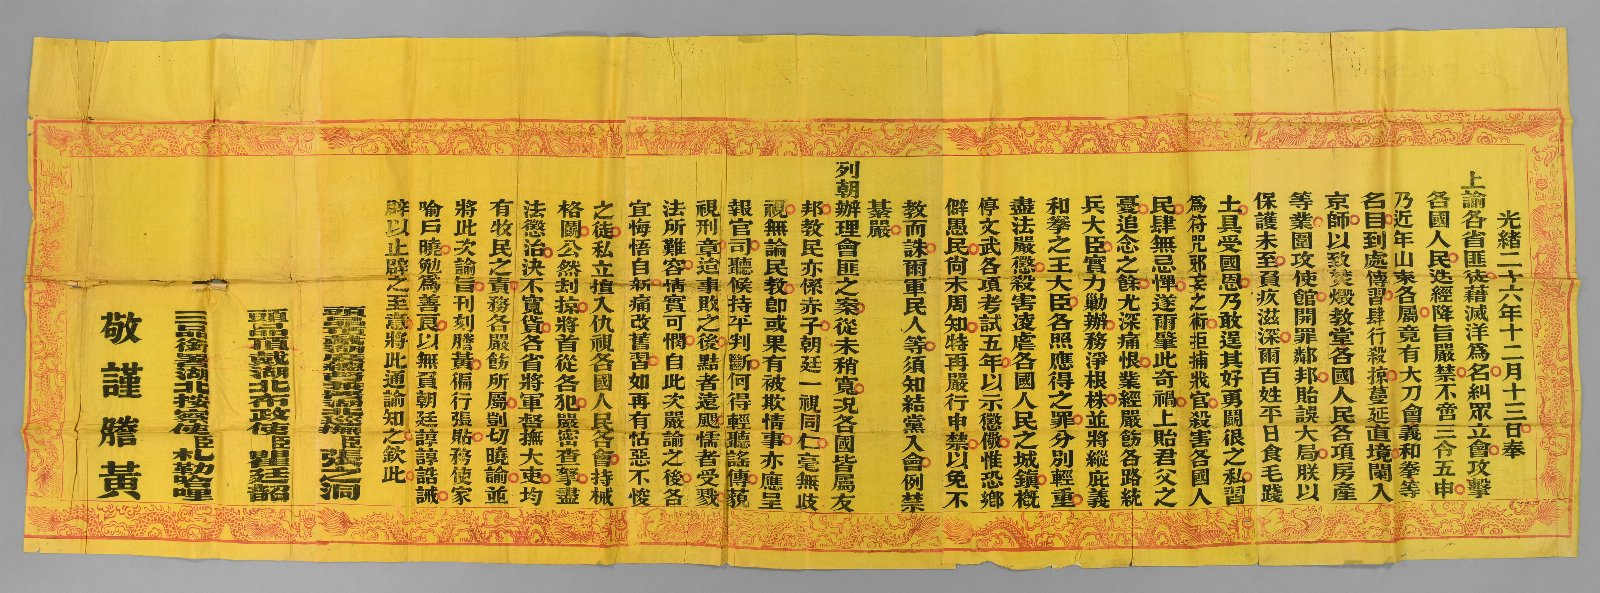 光緒二十六年十二月十三日奉
上諭各省匪徒藉滅洋爲名糾眾立會攻擊
各國人民迭經降旨嚴禁不啻三令五申
乃近年山東各屬竟有大刀會義和拳等
名目到處傳習肆行殺掠蔓延直境闌入
京師以致焚燬教堂各國人民各項房產
等業圍攻使館開罪鄰邦貽誤大局朕以
保護未至負疚滋深爾百姓平日食毛踐
土具受國恩乃敢逞其好勇鬭很之私習
爲符咒邪妄之術拒捕戕官殺害各國人
民肆無忌憚遂爾肇此奇禍上貽君父之
憂追念之餘尤深痛恨業經嚴飭各路統
兵大臣實力勦辦務淨根株並將縱庇義
和拳之王大臣各照應得之罪分別輕重
盡法嚴懲殺害凌虐各國人民之城鎮概
停文武各項考試五年以示懲儆惟恐鄉
僻愚民尚未周知特再嚴行申禁以免不
教而誅爾軍民人等須知結黨入會例禁
綦嚴
列朝辦理會匪之案從未稍寬況各國皆屬友
邦教民亦係赤子朝廷一視同仁毫無歧
視無論民教卽或果有被欺情事亦應呈
報官司聽候持平判斷何得輕聽謠傳藐
視刑章迨事敗之後黠者遠颺懦者受戮
法所難容情實可憫自此次嚴諭之後各
宜悔悟自新痛改舊習如再有怙惡不悛
之徒私立擅入仇視各國人民各會持械
格鬭公然刦掠將首從各犯嚴密查拏盡
法懲治決不寬貸各省將軍督撫大吏均
有牧民之責務各嚴飭所屬剴切曉諭並
將此次諭旨刊刻謄黃徧行張貼務使家
喻戶曉勉爲善良以無負朝廷諄諄誥誡
辟以止辟之至意將此通諭知之欽此
頭品頂戴湖北布政使臣瞿廷韶
敬謹謄黃